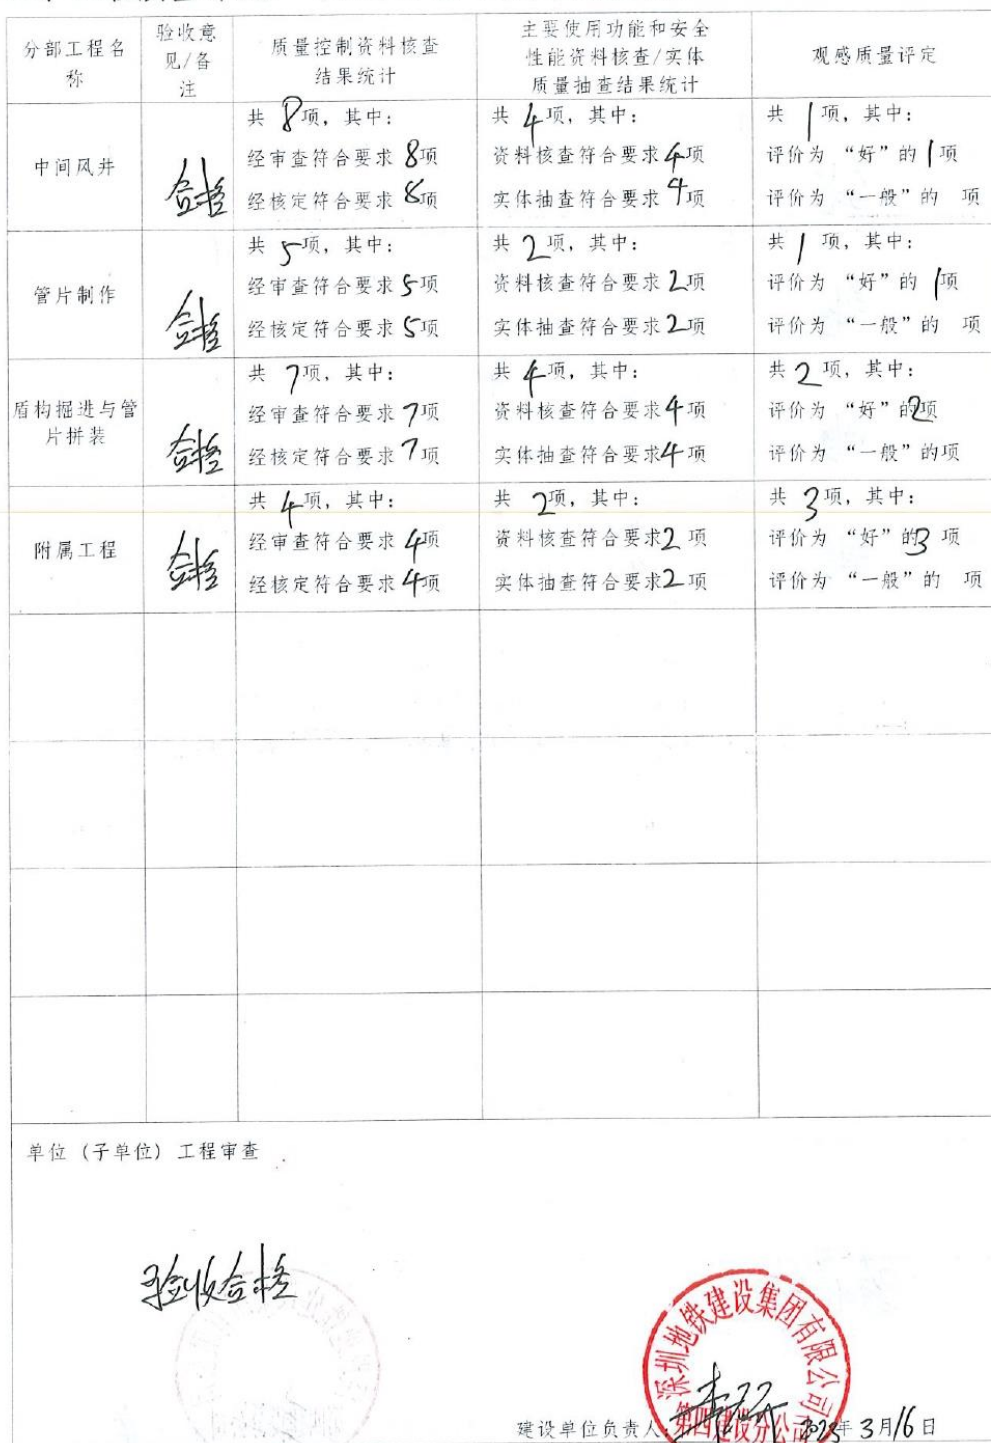 分部工程名
称
验收意
见/备
注
质量控制资料核查
结果统计
主要使用功能和安全
性能资料核查/实体
质量抽查结果统计
观感质量评定
中间风井
合格
共 8项，其中：
经审查符合要求 8项
经核定符合要求 8项
共 4项，其中：
资料核查符合要求 4项
实体抽查符合要求 4项
共 1项，其中：
评价为 “好”的 1项
评价为 “一般”的 项
管片制作
合格
共 5项，其中：
经审查符合要求 5项
经核定符合要求 5项
共 2项，其中：
资料核查符合要求 2项
实体抽查符合要求 2项
共 1 项，其中：
评价为 “好”的 1项
评价为 “一般”的 项
盾构掘进与管
片拼装
合格
共 7项，其中：
经审查符合要求 7项
经核定符合要求 7项
共 4项，其中：
资料核查符合要求 4项
实体抽查符合要求 4项
共 2项，其中：
评价为 “好”的2项
评价为 “一般”的项
附属工程
合格
共 4项，其中：
经审查符合要求 4项
经核定符合要求 4项
共 2项，其中：
资料核查符合要求2 项
实体抽查符合要求2 项
共 3项，其中：
评价为 “好”的3 项
评价为 “一般”的 项
单位（子单位）工程审查
验收合格
深圳地铁建设集团有限公司
第四建设分公司
建设单位负责人：
2023年 3月16日